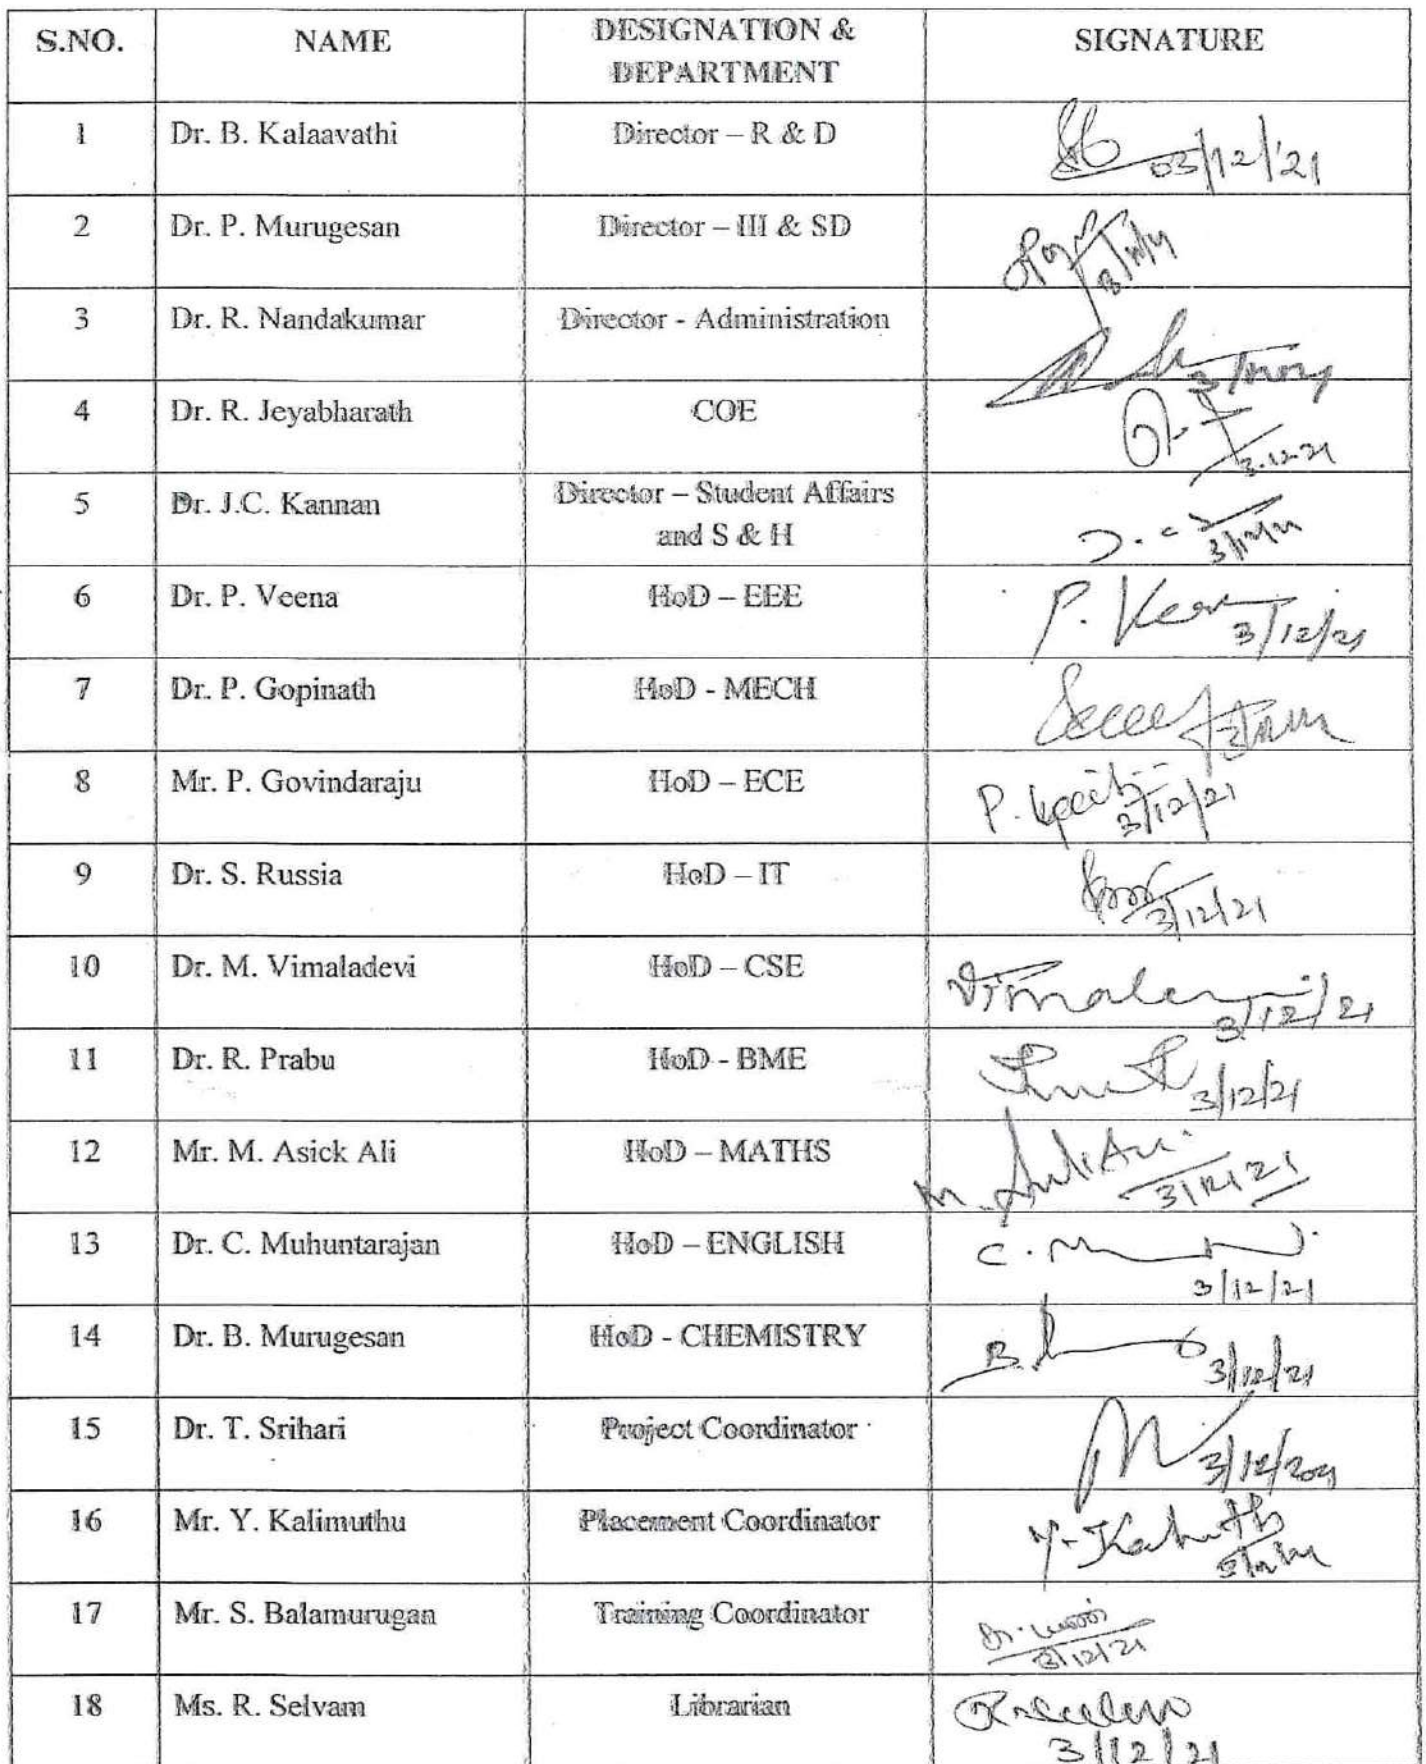 S.NO. NAME DESIGNATION & DEPARTMENT SIGNATURE
1 Dr. B. Kalaavathi Director – R & D 03/12/'21
2 Dr. P. Murugesan Director – III & SD
3 Dr. R. Nandakumar Director - Administration
4 Dr. R. Jeyabharath COE 3.12.21
5 Dr. J.C. Kannan Director – Student Affairs and S & H 3/12/21
6 Dr. P. Veena HoD – EEE P. Veena 3/12/21
7 Dr. P. Gopinath HoD - MECH
8 Mr. P. Govindaraju HoD – ECE P. 3/12/21
9 Dr. S. Russia HoD – IT 3/12/21
10 Dr. M. Vimaladevi HoD – CSE 3/12/21
11 Dr. R. Prabu HoD - BME 3/12/21
12 Mr. M. Asick Ali HoD – MATHS M. 3/12/21
13 Dr. C. Muhuntarajan HoD – ENGLISH C. 3/12/21
14 Dr. B. Murugesan HoD - CHEMISTRY B. 3/12/21
15 Dr. T. Srihari Project Coordinator 3/12/2021
16 Mr. Y. Kalimuthu Placement Coordinator Y.
17 Mr. S. Balamurugan Training Coordinator 3/12/21
18 Ms. R. Selvam Librarian 3/12/21